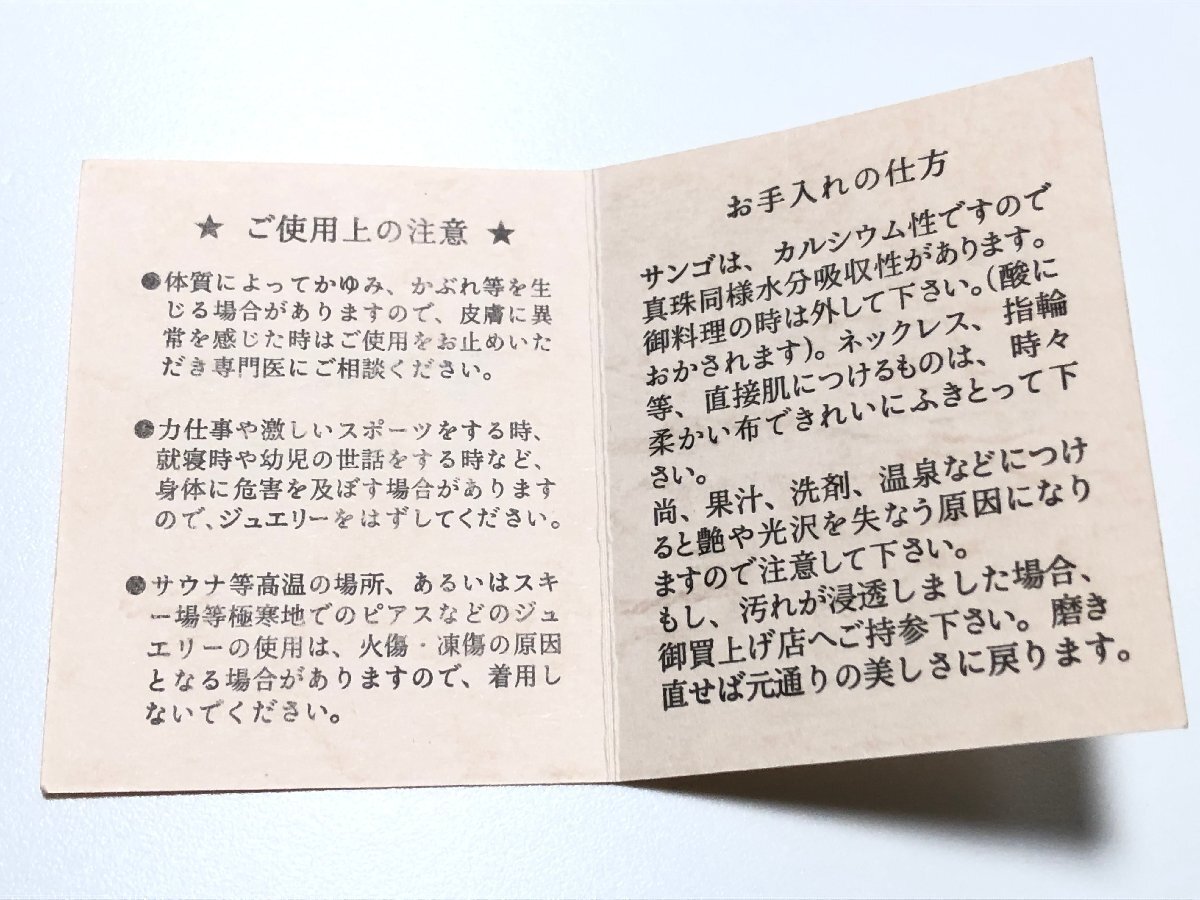 ★ ご使用上の注意 ★
●体質によってかゆみ、かぶれ等を生
じる場合がありますので、皮膚に異
常を感じた時はご使用をお止めいた
だき専門医にご相談ください。
●力仕事や激しいスポーツをする時、
就寝時や幼児の世話をする時など、
身体に危害を及ぼす場合があります
ので、ジュエリーをはずしてください。
●サウナ等高温の場所、あるいはスキ
ー場等極寒地でのピアスなどのジュ
エリーの使用は、火傷・凍傷の原因
となる場合がありますので、着用し
ないでください。
お手入れの仕方
サンゴは、カルシウム性ですので
真珠同様水分吸収性があります。
御料理の時は外して下さい。(酸に
おかされます)。ネックレス、指輪
等、直接肌につけるものは、時々
柔かい布できれいにふきとって下
さい。
尚、果汁、洗剤、温泉などにつけ
ると艶や光沢を失なう原因になり
ますので注意して下さい。
もし、汚れが浸透しました場合、
御買上げ店へご持参下さい。磨き
直せば元通りの美しさに戻ります。